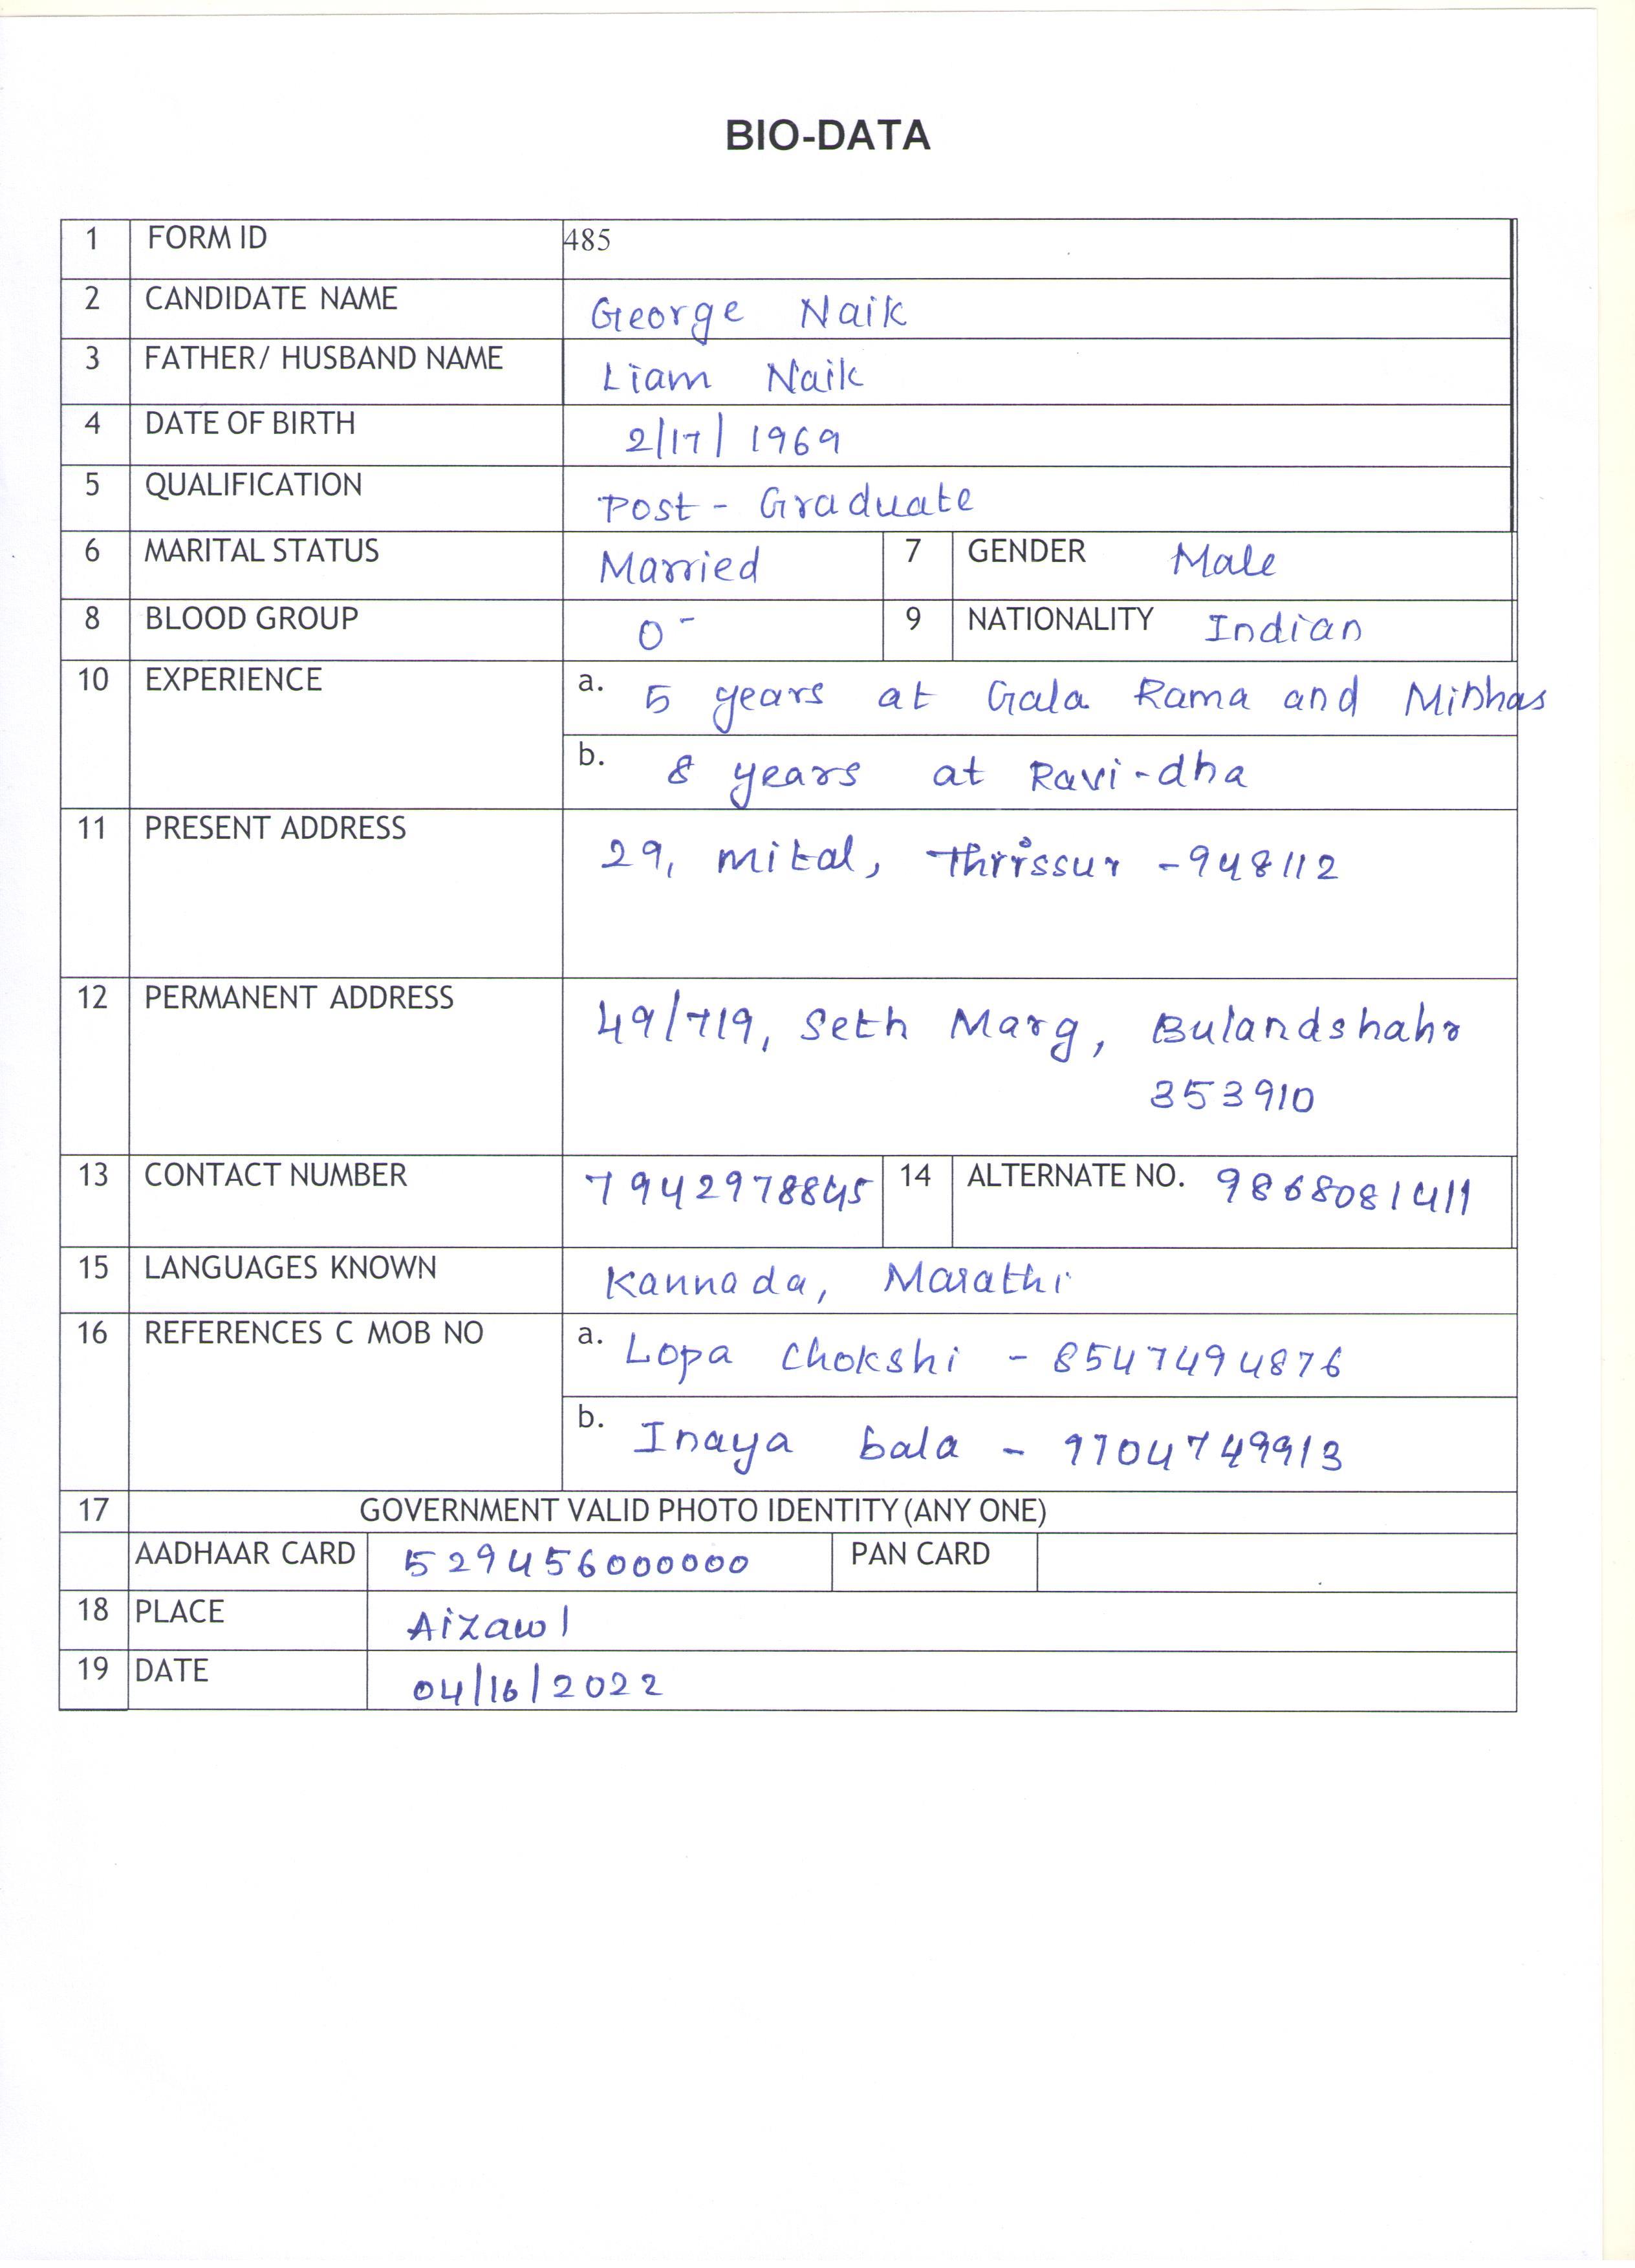 BIO-DATA
1 FORM ID 485
2 CANDIDATE NAME George Naik
3 FATHER/ HUSBAND NAME Liam Naik
4 DATE OF BIRTH 2/17/1969
5 QUALIFICATION Post - Graduate
6 MARITAL STATUS Married 7 GENDER Male
8 BLOOD GROUP O- 9 NATIONALITY Indian
10 EXPERIENCE a. 5 years at Gala Rama and Minhas
b. 8 years at Ravi-dha
11 PRESENT ADDRESS 29, Mital, Thrissur - 948112
12 PERMANENT ADDRESS 49/719, Seth Marg, Bulandshahr
353910
13 CONTACT NUMBER 7942978845 14 ALTERNATE NO. 9868081411
15 LANGUAGES KNOWN Kannada, Marathi
16 REFERENCES C MOB NO a. Lopa Chokshi - 8547494876
b. Inaya bala - 9704749913
17 GOVERNMENT VALID PHOTO IDENTITY (ANY ONE)
AADHAAR CARD 529456000000 PAN CARD
18 PLACE Aizawl
19 DATE 04/16/2022